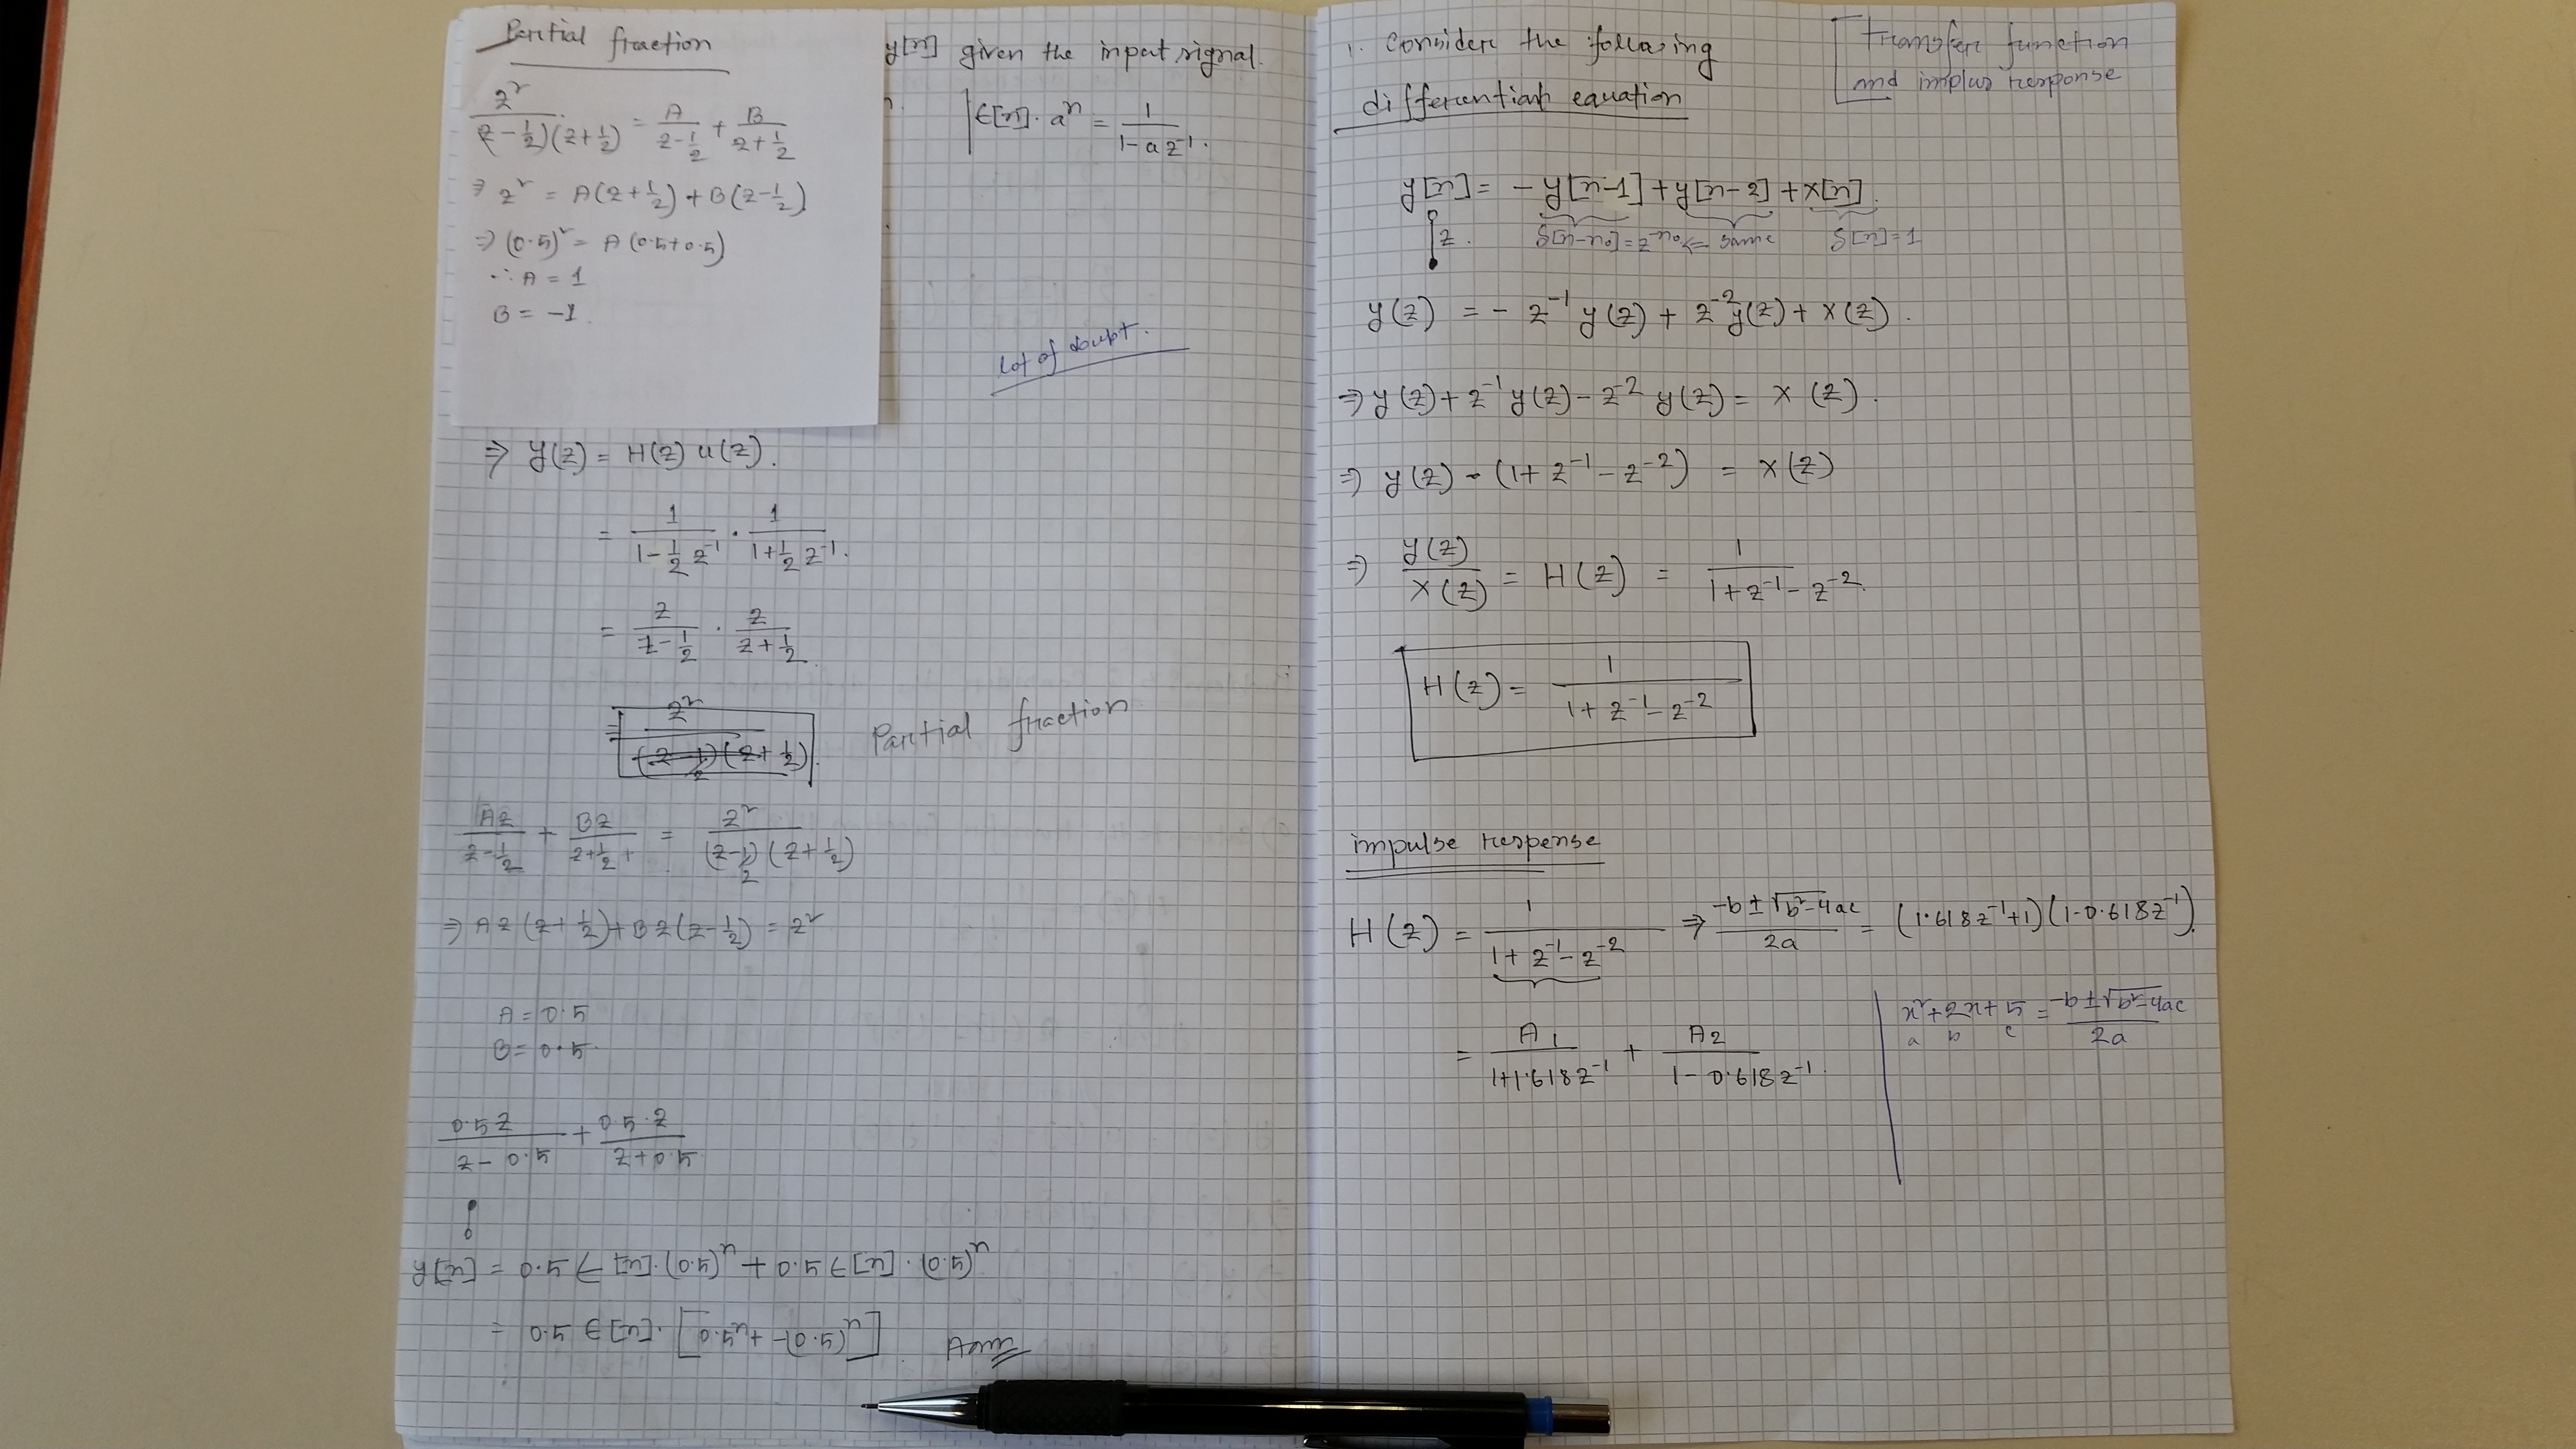 Partial fraction
z²/((z-1/2)(z+1/2)) = A/(z-1/2) + B/(z+1/2)
⇒ z² = A(z+1/2) + B(z-1/2)
⇒ (0.5)² = A(0.5+0.5)
∴ A = 1
B = -1.
y[n] given the input signal.
ϵ[n]. aⁿ = 1/(1-az⁻¹).
Lot of doubt.
⇒ y(z) = H(z) u(z).
= 1/(1-1/2 z⁻¹) . 1/(1+1/2 z⁻¹).
= z/(z-1/2) . z/(z+1/2).
= z²/((z-1/2)(z+1/2)). Partial fraction
Az/(z-1/2) + Bz/(z+1/2) = z²/((z-1/2)(z+1/2))
⇒ Az(z+1/2)+Bz(z-1/2) = z²
A = 0.5
B = 0.5.
0.5z/(z-0.5) + 0.5.z/(z+0.5)
y[n] = 0.5 ϵ[n].(0.5)ⁿ + 0.5 ϵ[n].(0.5)ⁿ
= 0.5 ϵ[n].[0.5ⁿ+-(0.5)ⁿ].
1. Consider the following
differential equation
Transfer function
and implus response
y[n] = -y[n-1]+y[n-2]+x[n].
z. δ[n-n₀]=z⁻ⁿ⁰ ⇒ same δ[n]=1
y(z) = - z⁻¹ y(z) + z⁻² y(z) + x(z).
⇒ y(z)+z⁻¹ y(z)-z⁻² y(z) = x(z).
⇒ y(z) - (1+z⁻¹-z⁻²) = x(z)
⇒ y(z)/x(z) = H(z) = 1/(1+z⁻¹-z⁻²).
H(z) = 1/(1+z⁻¹-z⁻²)
impulse response
H(z) = 1/(1+z⁻¹-z⁻²) ⇒ (-b±√(b²-4ac))/2a = (1.618z⁻¹+1)(1-0.618z⁻¹).
= A₁/(1+1.618z⁻¹) + A₂/(1-0.618z⁻¹).
x²+2x+5 = (-b±√(b²-4ac))/2a
a b c